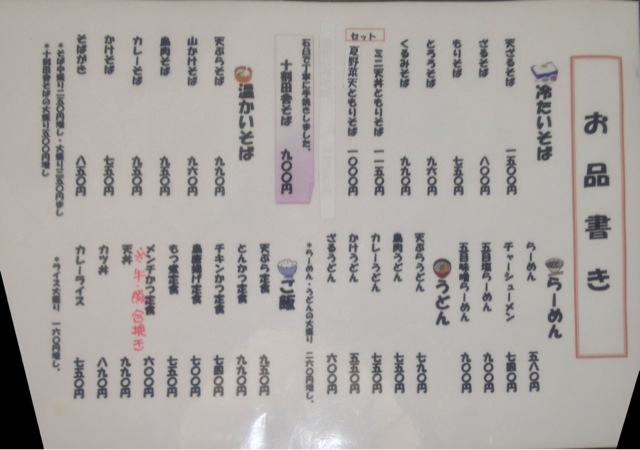 お品書き
冷たいそば
天ざるそば 一五〇〇円
ざるそば 八〇〇円
もりそば 七五〇円
とろろそば 九六〇円
くるみそば 九九〇円
セット
ミニ天丼ともりそば 一一五〇円
夏野菜天ともりそば 一〇〇〇円
石臼で丁寧に手挽きしました。
十割田舎そば 九〇〇円
温かいそば
天ぷらそば 九九〇円
山かけそば 九六〇円
鳥肉そば 九五〇円
カレーそば 九五〇円
かけそば 七五〇円
そばがき 八五〇円
*そば中盛り二五〇円増し・大盛り三五〇円増し
*十割田舎そばの大盛り五〇〇円増し
らーめん
らーめん 五八〇円
チャーシューメン 七四〇円
五目塩らーめん 九〇〇円
五目味噌らーめん 九〇〇円
うどん
天ぷらうどん 七九〇円
鳥肉うどん 七五〇円
カレーうどん 七五〇円
かけうどん 五五〇円
ざるうどん 六〇〇円
*らーめん・うどんの大盛り 二六〇円増し
ご飯
天ぷら定食 九五〇円
とんかつ定食 九九〇円
チキンかつ定食 七四〇円
鳥唐揚げ定食 七〇〇円
もつ煮定食 七五〇円
メンチかつ定食 六〇〇円
※牛・豚合挽き
天丼 九九〇円
カツ丼 八九〇円
カレーライス 七五〇円
*ライス大盛り 一六〇円増し